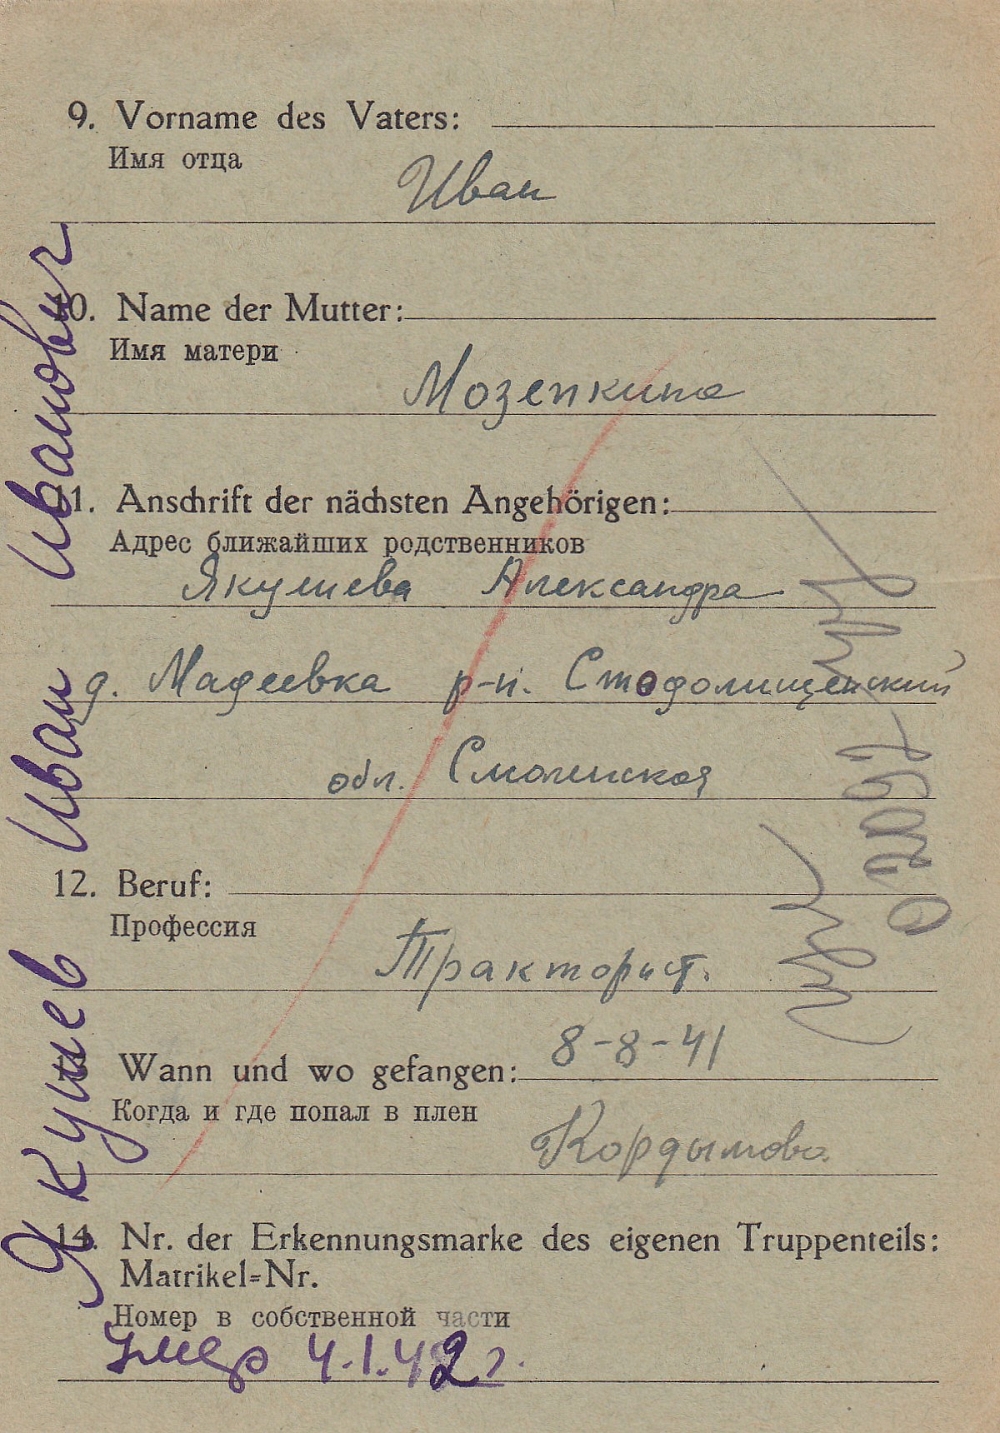 9. Vorname des Vaters:
Имя отца
Иван
10. Name der Mutter:
Имя матери
Мозепкина
11. Anschrift der nächsten Angehörigen:
Адрес ближайших родственников
Якушева Александра
д. Мадеевка р-н. Стодолищенский
обл. Смоленская
12. Beruf:
Профессия
Тракторист.
13. Wann und wo gefangen: 8-8-41
Когда и где попал в плен
Кордымова
14. Nr. der Erkennungsmarke des eigenen Truppenteils:
Matrikel=Nr.
Номер в собственной части
Умер 4.1.42 г.
Якушев Иван Иванович